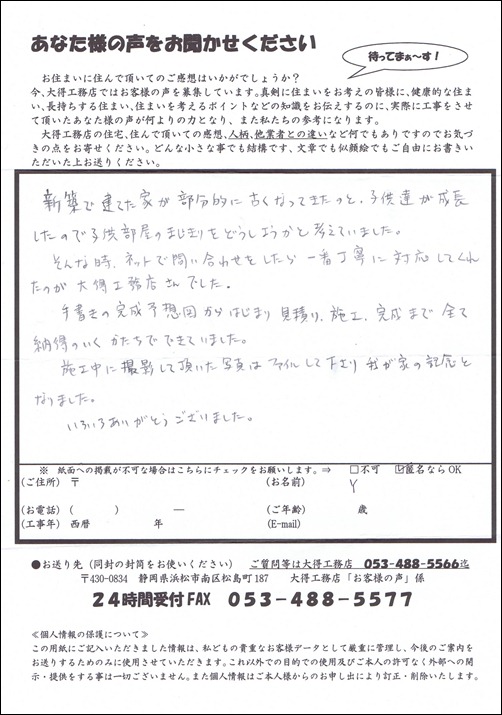 あなた様の声をお聞かせください
待ってまぁ～す！
お住まいに住んで頂いてのご感想はいかがでしょうか？
今、大得工務店ではお客様の声を募集しています。真剣に住まいをお考えの皆様に、健康的な住ま
い、長持ちする住まい、住まいを考えるポイントなどの知識をお伝えするのに、実際に工事をさせ
て頂いたあなた様の声が何よりの力となり、また私たちの参考になります。
大得工務店の住宅、住んで頂いての感想、人柄、他業者との違いなど何でもありですのでお気づ
きの点をお寄せください。どんな小さな事でも結構です、文章でも似顔絵でもご自由にお書きい
ただいた上お送りください。
新築で建てた家が部分的に古くなってきたのと、子供達が成長
したので子供部屋のまじきりをどうしようかと考えていました。
そんな時、ネットで問い合わせをしたら一番丁寧に対応してくれ
たのが大得工務店さんでした。
手書きの完成予想図からはじまり見積り、施工、完成まで全て
納得のいくかたちでできていました。
施工中に撮影して頂いた写真はファイルして下さり我が家の記念と
なりました。
いろいろありがとうございました。
※ 紙面への掲載が不可な場合はこちらにチェックをお願いします。⇒ □不可 ☑匿名ならOK
(ご住所) 〒 (お名前) Y
(お電話) ( ) ― (ご年齢) 歳
(工事年) 西暦 年 (E-mail)
●お送り先（同封の封筒をお使いください） ご質問等は大得工務店 053-488-5566迄
〒430-0834 静岡県浜松市南区松島町187 大得工務店「お客様の声」係
24時間受付FAX 053-488-5577
≪個人情報の保護について≫
この用紙にご記入いただきました情報は、私どもの貴重なお客様データとして厳重に管理し、今後のご案内を
お送りするためのみに使用させていただきます。これ以外での目的での使用及びご本人の許可なく外部への開
示・提供をする事は一切ございません。また個人情報はご本人様からのお申し出により訂正・削除いたします。